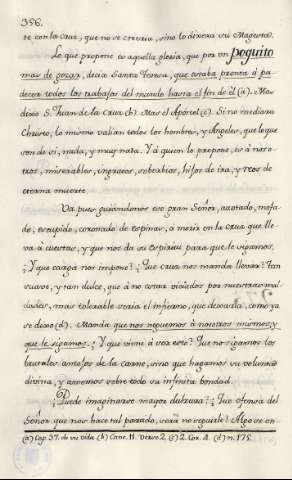 356.
te con la Cruz, que no se creeria, sino lo dixera su Magestad.
Lo que propone es aquella gloria, que por un poquito
mas de gozar, decia Santa Teresa, que estaba pronta á pa-
decer todos los trabajos del mundo hasta el fin de él (a). Mas
dixo S. Juan de la Cruz (b). Mas el Apóstol (c). Si no mediara
Christo, lo mismo valian todos los hombres, y Angeles, que lo que
son de sí, nada, y muy nada. Y á quien lo propone, es á noso-
tros, miserables, ingratos, soberbios, hijos de ira, y reos de
eterna muerte.
Va pues guiándonos ese gran Señor, azotado, mofa-
do, escupido, coronado de espinas, á morir en la cruz que lle-
va á cuestas, y que nos da su espiritu para que le sigamos.
¿Y que carga nos impone? ¿Que cruz nos manda llevar? Tan
suave, y tan dulce, que á no estar viciados por nuestras mal-
dades, mas tolerable seria el infierno, que dexarla, como ya
se dixo (d). Manda que nos neguemos á nosotros mismos, y
que le sigamos. ¿Y que viene á ser esto? Que no sigamos los
brutales antojos de la carne, sino que hagamos su voluntad
divina, y amemos sobre todo su infinita bondad.
¿Puede imaginarse mayor dulzura? ¿Que ofensa del
Señor que nos hace tal partido, será no seguirle? Algo se en-
(a) Cap. 37. de su vida. (b) Canc. 11. Verso 2. (c) 2. Cor. 4. (d) n. 175.